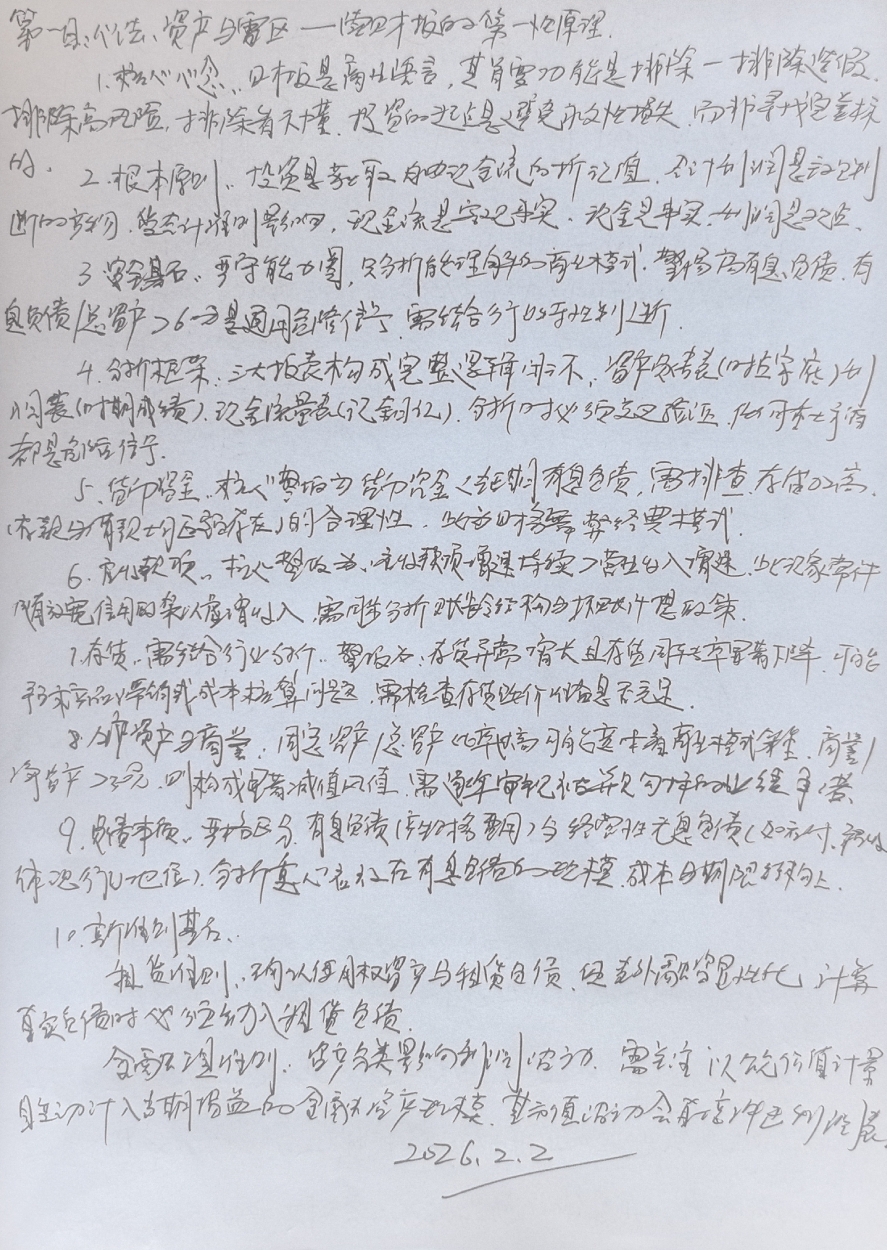 第一且:心法、资产与雷区——读财报的第一性原理.
1.核心心念:财报是商业语言,其首要功能是排除—排除造假,
排除高风险,排除看不懂.投资的起点是避免永久性损失,而非寻找完美标
的.
2.根本原则:投资是获取自由现金流的折现值.会计利润是被判
断的产物,受会计准则影响,现金流是客观事实.现金是事实,利润是观点.
3 安全基石:严守能力圈,只分析能理解的商业模式.警惕高有息负债.有
息负债/总资产>6一方是通用危险信号,需结合行业特性判断.
4.分析框架:三大报表构成完整逻辑闭环,资产负债表(时点家底)利
润表(时期成绩).现金流量表(现金记忆).分析时必须交叉验证,任何矛盾
都是危险信号.
5.货币资金:核心警报为货币资金<短期有息负债,需排查"存贷双高"
(存款与有息负债同在)的合理性,此为财务舞弊经典模式.
6.应收款项:核心警报为:应收款项增速持续>营业收入增速,此现象常伴
随放宽信用政策以虚增收入,需同步分析账龄结构与坏账计提政策.
7.存货:需结合行业分析.警报为:存货异常增长且存货周转率显著下降,可能
预示产品滞销或成本核算问题,需检查存货跌价准备是否充足.
8.生产资产与商誉:固定资产/总资产比率过高可能意味着商业模式笨重,商誉/
净资产>30%,则构成显著减值风险,需逐年审视并购标的业绩承诺.
9.负债事项:严格区分有息负债(付财务费用)与经营性无息负债(如应付、预收
体现行业地位).分析重心应放在有息负债的规模、成本与期限结构上.
10.新准则基石:
租赁准则:确认使用权资产与租赁负债,使表外融资显性化,计算
真实负债时必须纳入租赁负债.
金融工具准则:资产分类影响利润波动,需关注以公允价值计量
且变动计入当期损益的金融资产规模,其市值波动会直接冲击利润表.
2026.2.2